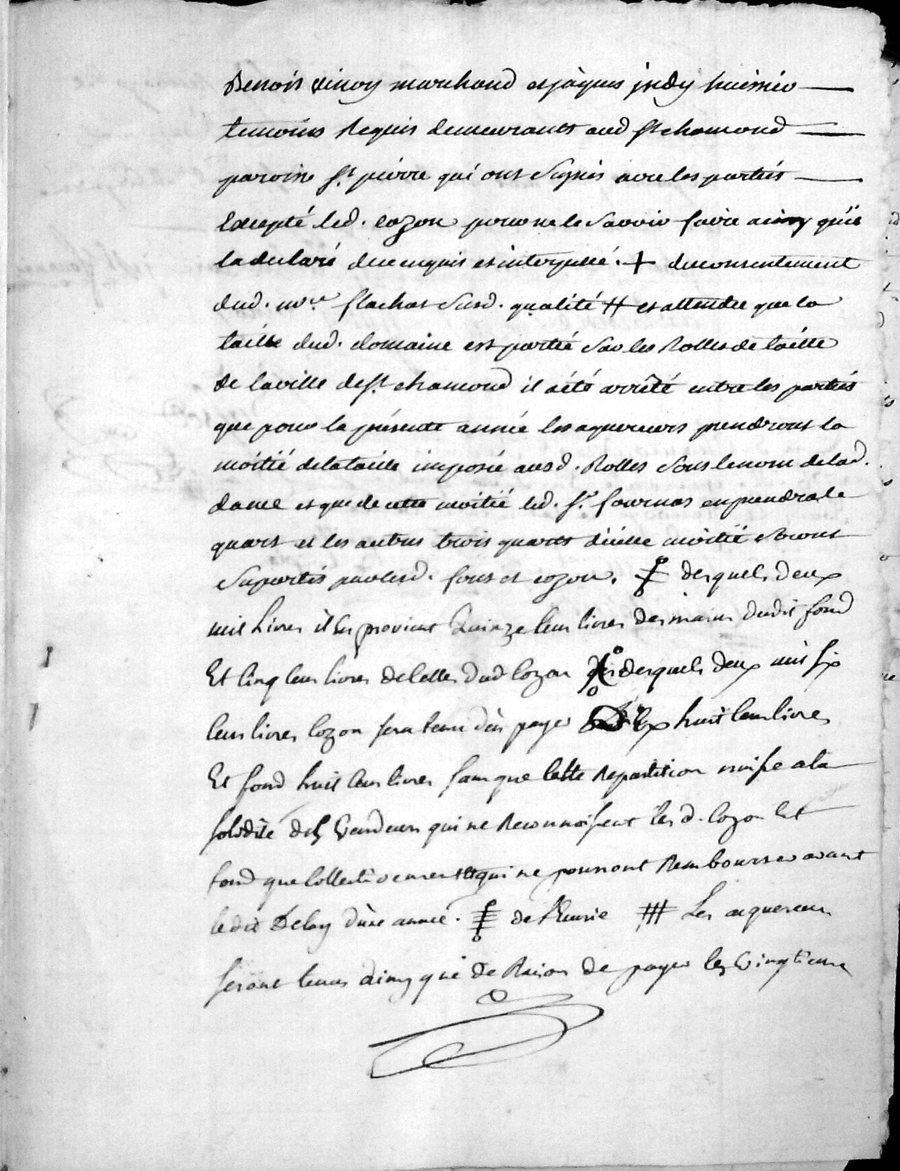 Benoit vinoy marchand et jâques jndy huissier
temoins Requis demeurants aud St chamond
paroise St. piérre qui ont Signés avec les partiës
Excepté led. cozon pour ne le Savoir faire ainsy qu'il
la declaré de ce enquis et interpellé. + du consentement
dud. flachat Susd. qualité # et attendu que la
taille dud. domaine est portée Sur les Rolles de taille
de la ville de St. chamond il a été arrêté entre les partiës
que pour la présente année les aquereurs prendront la
moitié de la taille imposée ausd. Rolles Sous le nom de lad.
dame et que de cette moitié led. Sr. fournas en prendra le
quart et les autres trois quarts d'icelle moitié Seront
Suportés par lesd. font et cozon. desquels deux
mil Livres il En provient Quinze Cent livres des mains dudit fond
Et Cinq Cent livres de Celles dud Cozon desquels deux mil six
Cent livres Cozon sera tenu d'en payer huit Cent livres
Et fond huit Cent livres sans que Cette Repartition nuise a la
solidité des Vendeurs qui ne Reconnoissent Lesd. Cozon Et
fond que Collectivement qui ne pourront Rembourser avant
ledit Delay d'une année. de Les aquereurs
seront tenus ainsy que de Raison de payer les Vingtieme